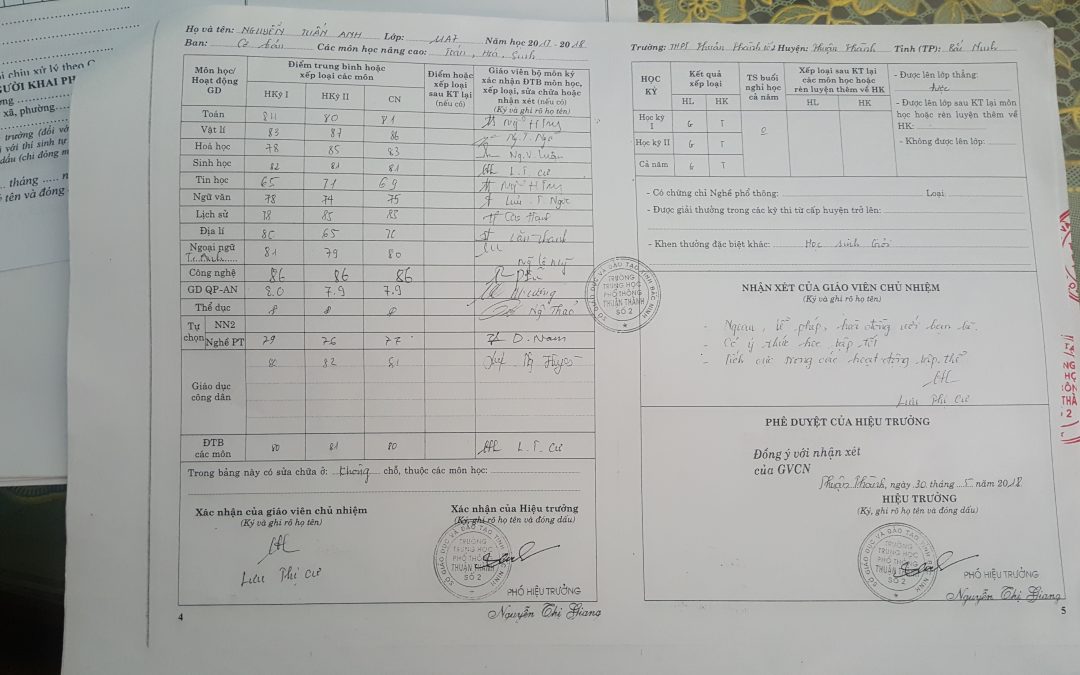 Họ và tên: NGUYỄN TUẤN ANH Lớp: 11A7 Năm học 2017 - 2018
Ban: Cơ bản Các môn học nâng cao: Toán, Hoá, Sinh
Môn học/ Hoạt động GD
Điểm trung bình hoặc xếp loại các môn
HKỳ I HKỳ II CN
Điểm hoặc xếp loại sau KT lại (nếu có)
Giáo viên bộ môn ký xác nhận ĐTB môn học, xếp loại, sửa chữa hoặc nhận xét (nếu có)
(Ký và ghi rõ họ tên)
Toán 80 81
Vật lí 83 87 86
Hoá học 78 85 83 Ng.V. Luận
Sinh học 82 81 81 L. T. Cư
Tin học 65 71 69
Ngữ văn 78 74 75
Lịch sử 78 85 83
Địa lí 80 65 70
Ngoại ngữ 81 79 80
T. Anh
Công nghệ 86 86 86
GD QP-AN 8.0 7.9 7.9
Thể dục Ng Thảo
Tự chọn
NN2
Nghề PT 79 76 77 D. Nam
Giáo dục công dân 80 82 81
ĐTB các môn 80 81 80 L. T. Cư
Trong bảng này có sửa chữa ở: không chỗ, thuộc các môn học:
Xác nhận của giáo viên chủ nhiệm
(Ký và ghi rõ họ tên)
Lưu Thị Cư
Xác nhận của Hiệu trưởng
(Ký, ghi rõ họ tên và đóng dấu)
SỞ GIÁO DỤC VÀ ĐÀO TẠO TỈNH BẮC NINH
TRƯỜNG
TRUNG HỌC
PHỔ THÔNG
THUẬN THÀNH
SỐ 2
PHÓ HIỆU TRƯỞNG
Nguyễn Thị Giang
4
Trường: THPT Thuận Thành số 2 Huyện: Thuận Thành Tỉnh (TP): Bắc Ninh
HỌC KỲ
Kết quả xếp loại
HL HK
TS buổi nghỉ học cả năm
Xếp loại sau KT lại các môn học hoặc rèn luyện thêm về HK
HL HK
Học kỳ I G T
Học kỳ II G T
Cả năm G T
- Được lên lớp thẳng:
được
- Được lên lớp sau KT lại môn học hoặc rèn luyện thêm về HK:
- Không được lên lớp:
- Có chứng chỉ Nghề phổ thông: Loại:
- Được giải thưởng trong các kỳ thi từ cấp huyện trở lên:
- Khen thưởng đặc biệt khác: Học sinh Giỏi
SỞ GIÁO DỤC VÀ ĐÀO TẠO TỈNH BẮC NINH
TRƯỜNG
TRUNG HỌC
PHỔ THÔNG
THUẬN THÀNH
SỐ 2
NHẬN XÉT CỦA GIÁO VIÊN CHỦ NHIỆM
(Ký và ghi rõ họ tên)
- Ngoan, lễ phép, hoà đồng với bạn bè.
- Có ý thức học tập tốt
- Tích cực trong các hoạt động tập thể
Lưu Thị Cư
PHÊ DUYỆT CỦA HIỆU TRƯỞNG
Đồng ý với nhận xét
của GVCN
Thuận Thành, ngày 30 tháng 5 năm 2018
HIỆU TRƯỞNG
(Ký, ghi rõ họ tên và đóng dấu)
SỞ GIÁO DỤC VÀ ĐÀO TẠO TỈNH BẮC NINH
TRƯỜNG
TRUNG HỌC
PHỔ THÔNG
THUẬN THÀNH
SỐ 2
PHÓ HIỆU TRƯỞNG
Nguyễn Thị Giang
5